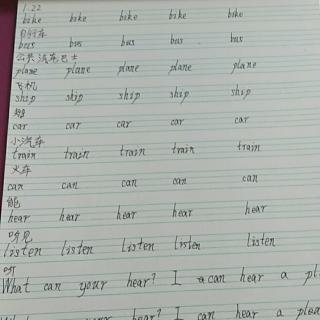 1.22
bike bike bike bike bike
自行车
bus bus bus bus bus
公共汽车 巴士
plane plane plane plane plane
飞机
ship ship ship ship ship
船
car car car car car
小汽车
train train train train train
火车
can can can can can
能
hear hear hear hear hear
听见
listen listen listen listen listen
听
What can your hear? I can hear a pl
hear? I can hear a plea